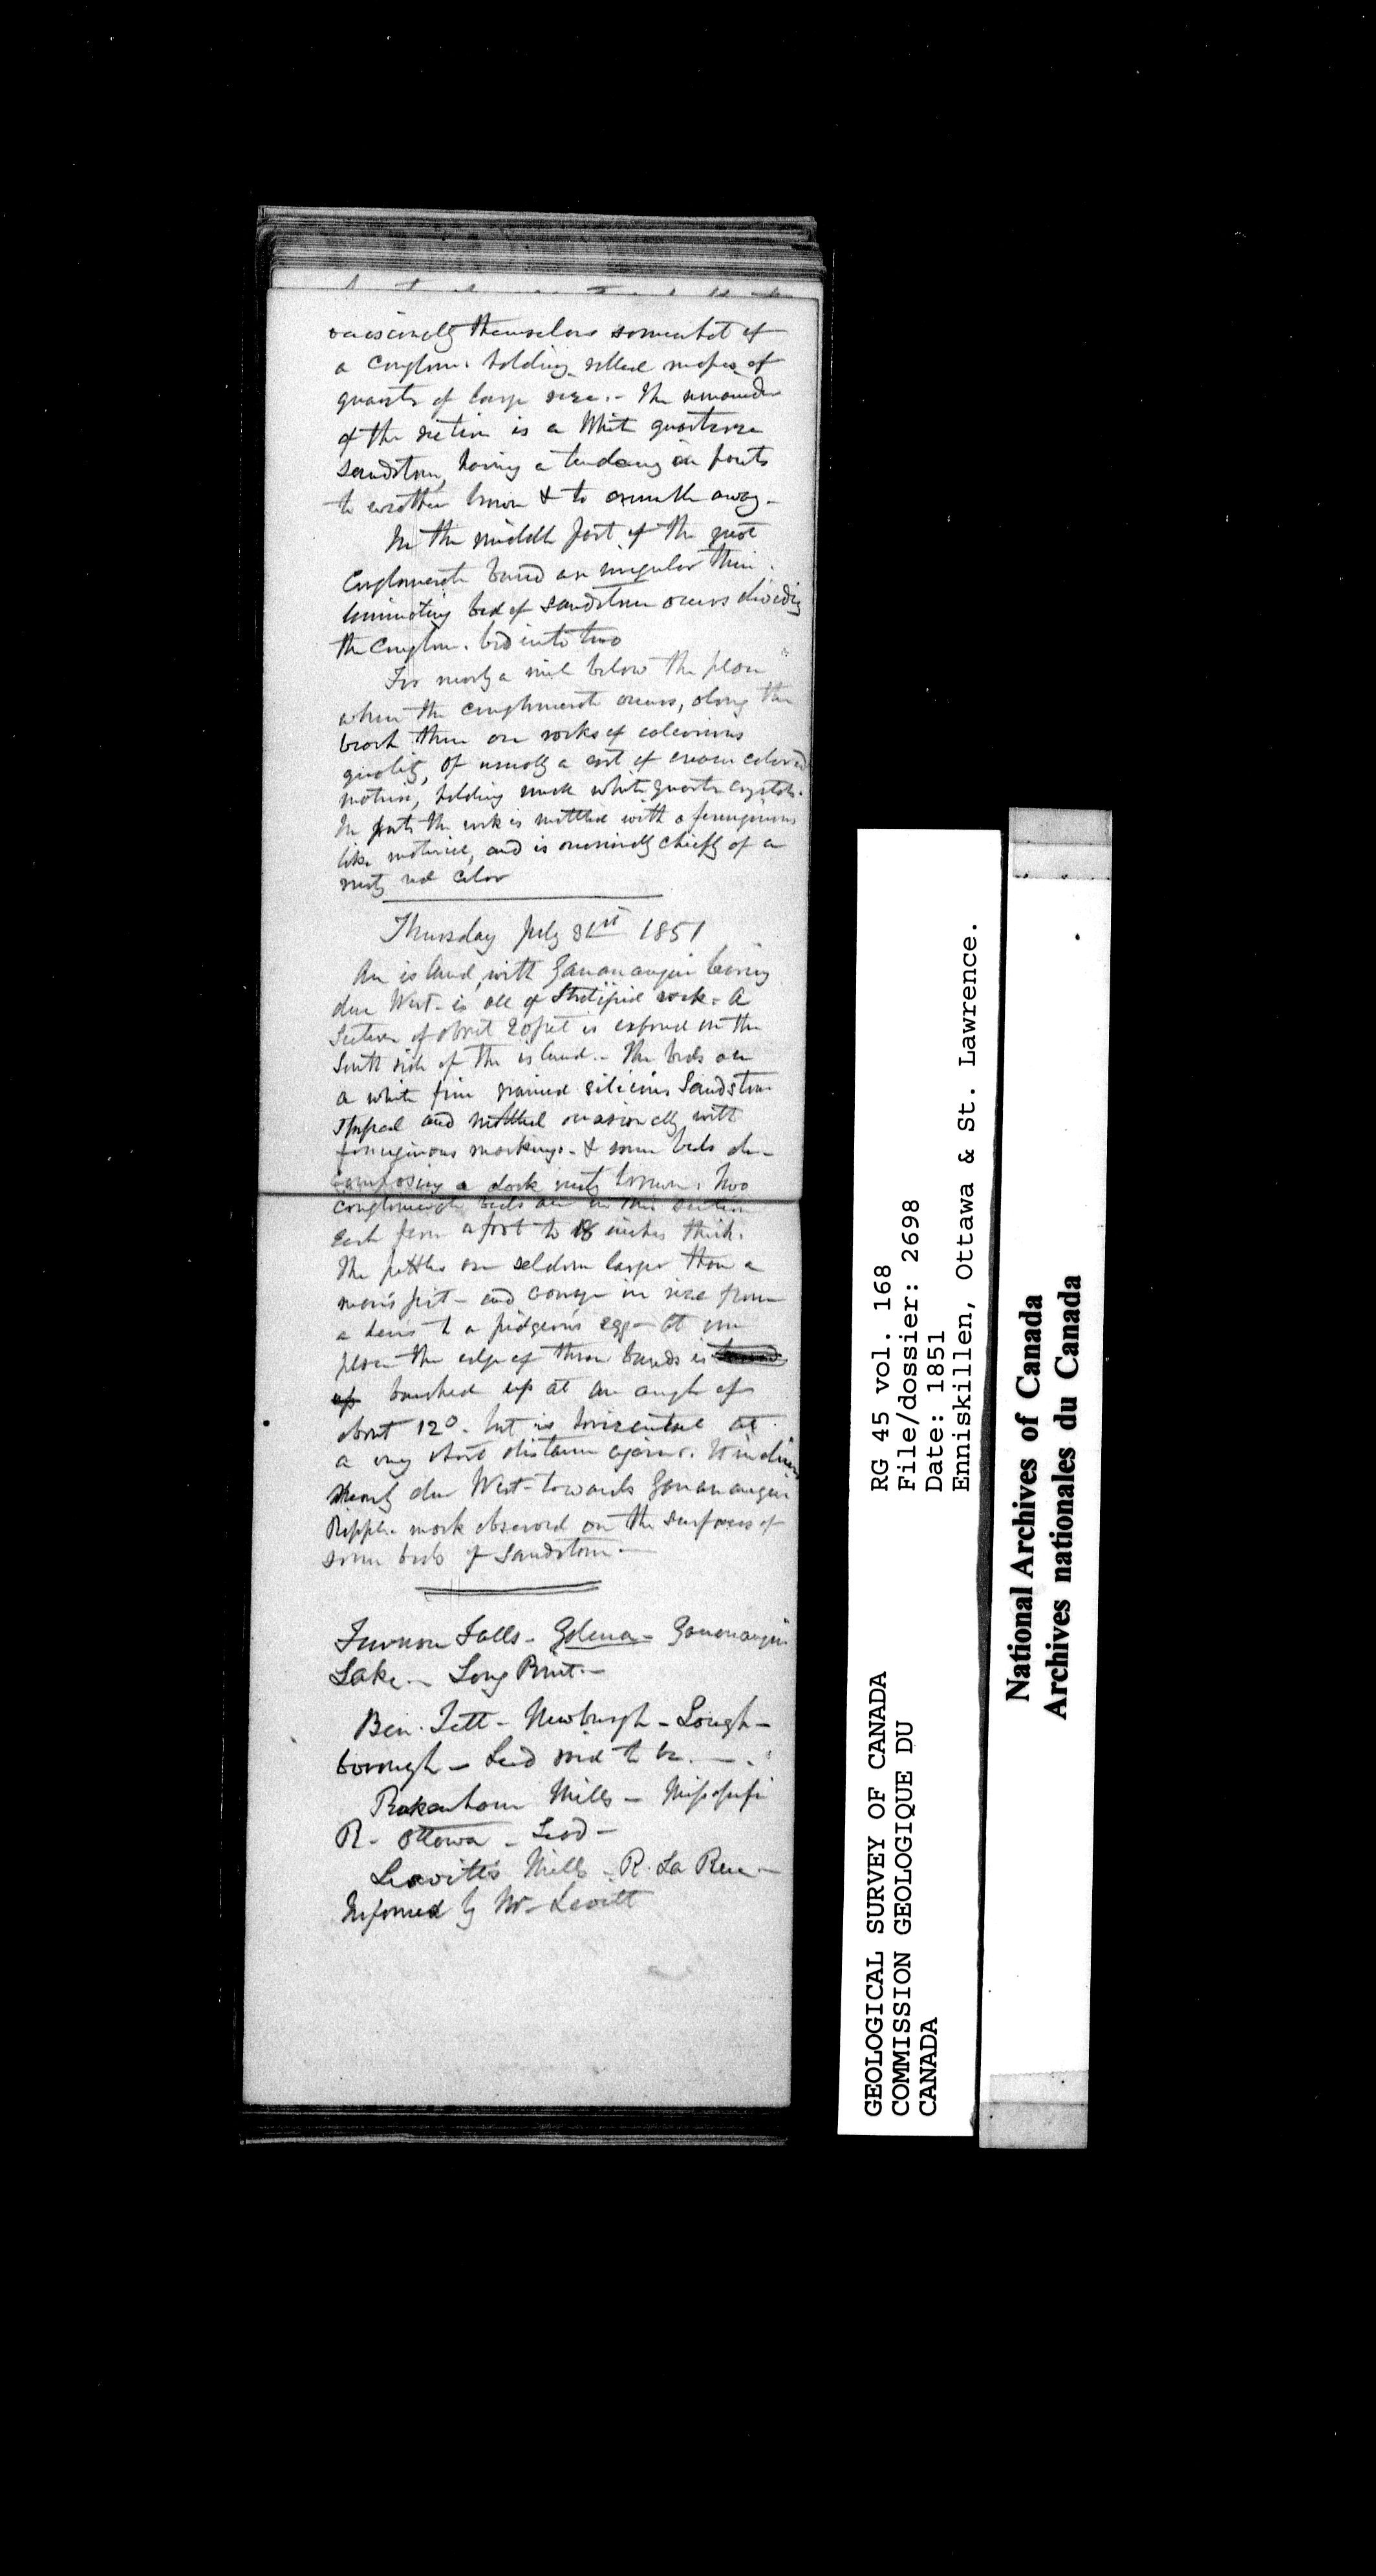 occasionally themselves somewhat of
a conglom. holding rolled masses of
quartz of large size. - The remainder
of the section is a White quartzose
sandstone, having a tendency in parts
to weather brown & to crumble away -
In the middle part of the great
Conglomerate band an irregular thin
laminating bed of sandstone occurs dividing
the conglom. bed into two
For nearly a mile below the place
where the conglomerate occurs, along the
beach there are rocks of calcareous
quality, of usually a sort of cream colored
matrix, holding much white quartz crystals.
In parts the rock is mottled with a ferruginous
like material, and is occasionally chiefly of a
rusty red color
Thursday July 31st 1851
An island, with Gananauquin bearing
due West - is all of Stratified rock - A
Section of about 20 feet is exposed on the
South side of the island. - The beds are
a white fine grained silicious Sandstone
striped and mottled occasionally with
ferruginous markings. & some beds de-
composing a dark rusty brown. Two
conglomerate beds are in this section
each from a foot to 18 inches thick.
The pebbles are seldom larger than a
man's fist - and average in size from
a hen's to a pidgeon's egg - At one
place the edge of these bands is
up bunched up at an angle of
about 12° - but is horizontal at
a very short distance again.
nearly due West - towards Gananauquin
Ripple mark observed on the surfaces of
some beds of Sandstone -
Furnace Falls - Galena - Gananauquin
Lake - Long Point -
Ben. Tett - Newburgh - Lough-
borough - Lead said to be. -
Pakenham Mills - Missisipi
R. Ottowa - Lead -
Leavitt's Mills - R. La Rue -
Informed by Mr. Leavitt
GEOLOGICAL SURVEY OF CANADA
COMMISSION GEOLOGIQUE DU
CANADA
RG 45 vol. 168
File/dossier: 2698
Date: 1851
Enniskillen, Ottawa & St. Lawrence.
National Archives of Canada
Archives nationales du Canada